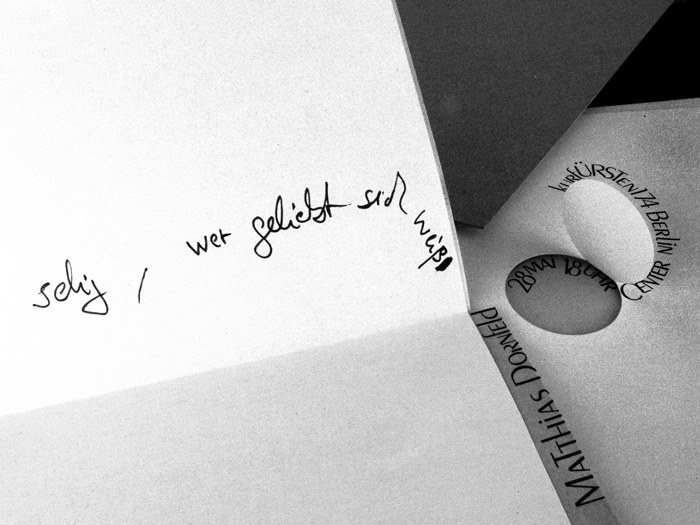 selig, wer geliebt sich weiß
kurfÜRSTEN174 BERLIN CENTER
28 MAI 18 UHR
MATTHIAS DORNFELD